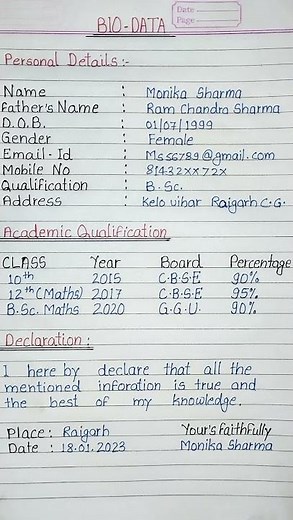 Date
Page
BIO-DATA
Personal Details :-
Name : Monika Sharma
Father's Name : Ram Chandra Sharma
D.O.B. : 01/07/1999
Gender : Female
Email-Id : Ms56789@gmail.com
Mobile No : 81432xx72x
Qualification : B.Sc.
Address : Kelo vihar Raigarh C.G.
Academic Qualification
CLASS Year Board Percentage
10th 2015 C.B.S.E 90%
12th (Maths) 2017 C.B.S.E 95%
B.Sc. Maths 2020 G.G.U. 90%
Declaration :
I here by declare that all the
mentioned inforation is true and
the best of my knowledge.
Place : Raigarh Your's Faithfully
Date : 18.01.2023 Monika Sharma